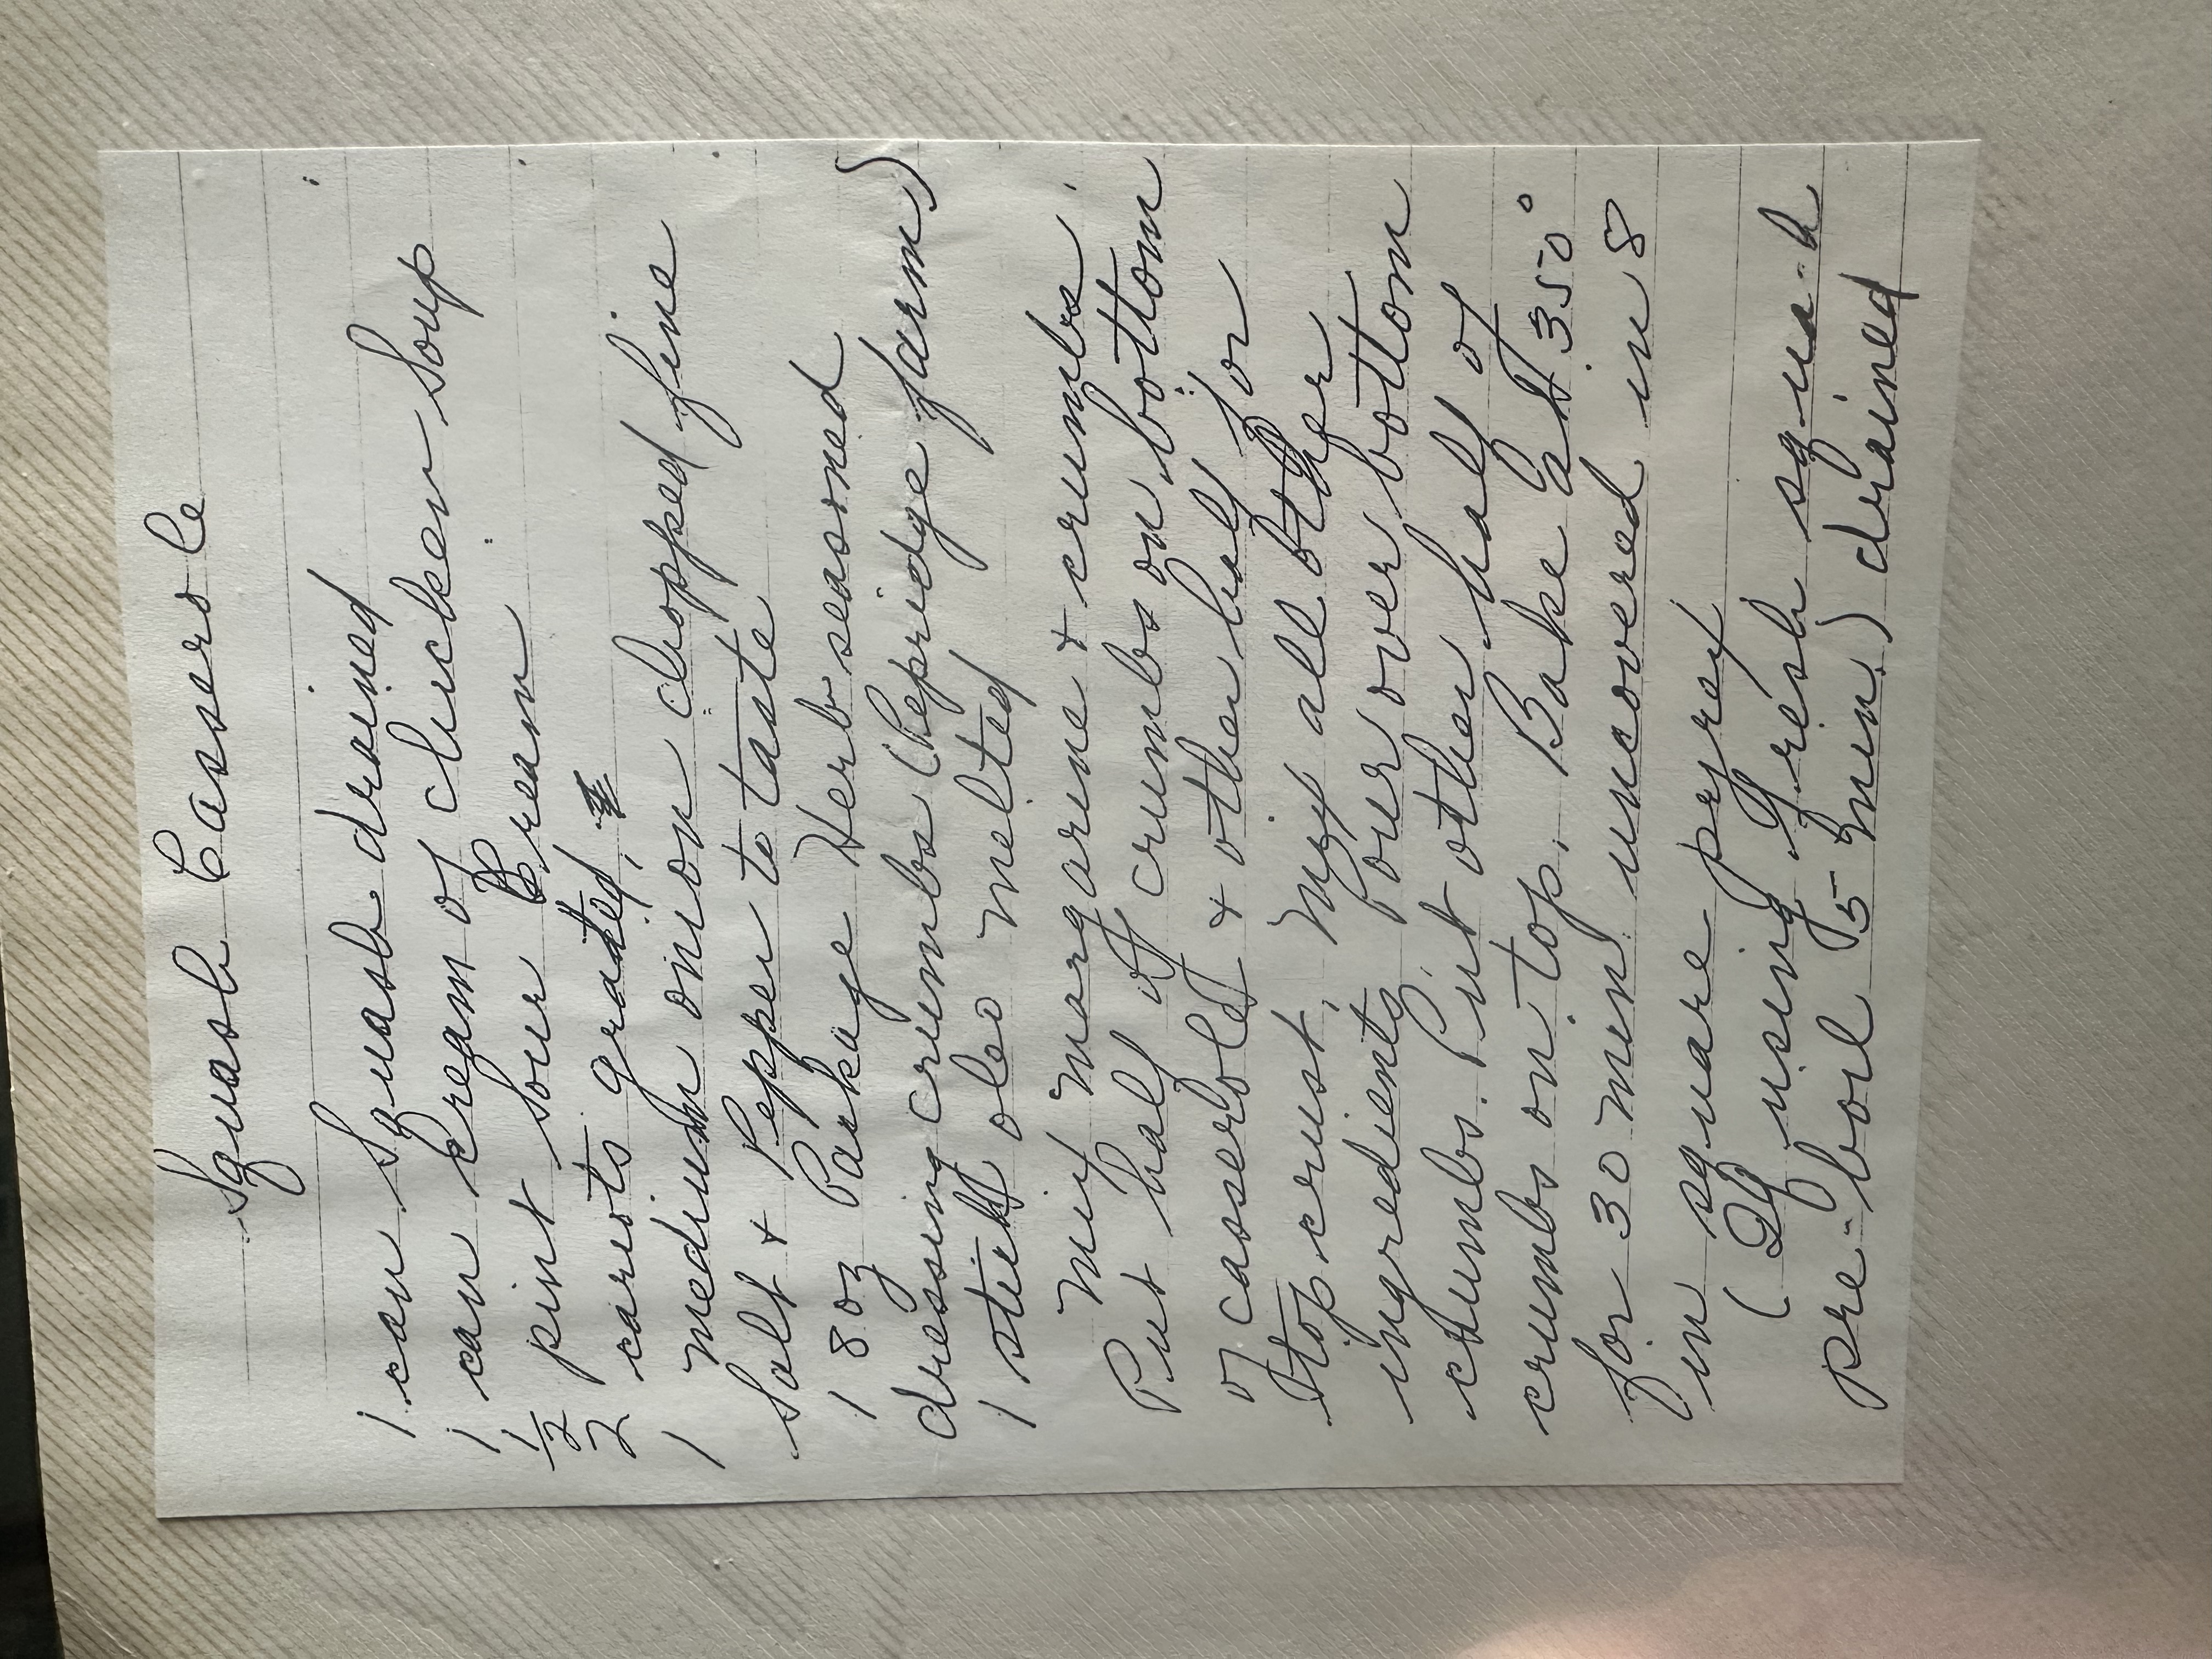 Squash Casserole
1 can Squash drained
1 can Cream of chicken Soup
1/2 pint Sour Cream
2 carrots grated,
1 medium onion chopped fine
Salt + Pepper to taste
1 8oz Package Herb seasoned
dressing crumbs (Pepridge farm)
1 stick oleo melted
Mix margarine + crumbs
Put half of crumbs on bottom
of casserole + other half for
top crust. Mix all other
ingredients. Pour over bottom
crumbs. Put other half of
crumbs on top. Bake at 350°
for 30 min. uncovered in 8
in square pyrex
(If using fresh squash
pre-boil 5 min.) drained